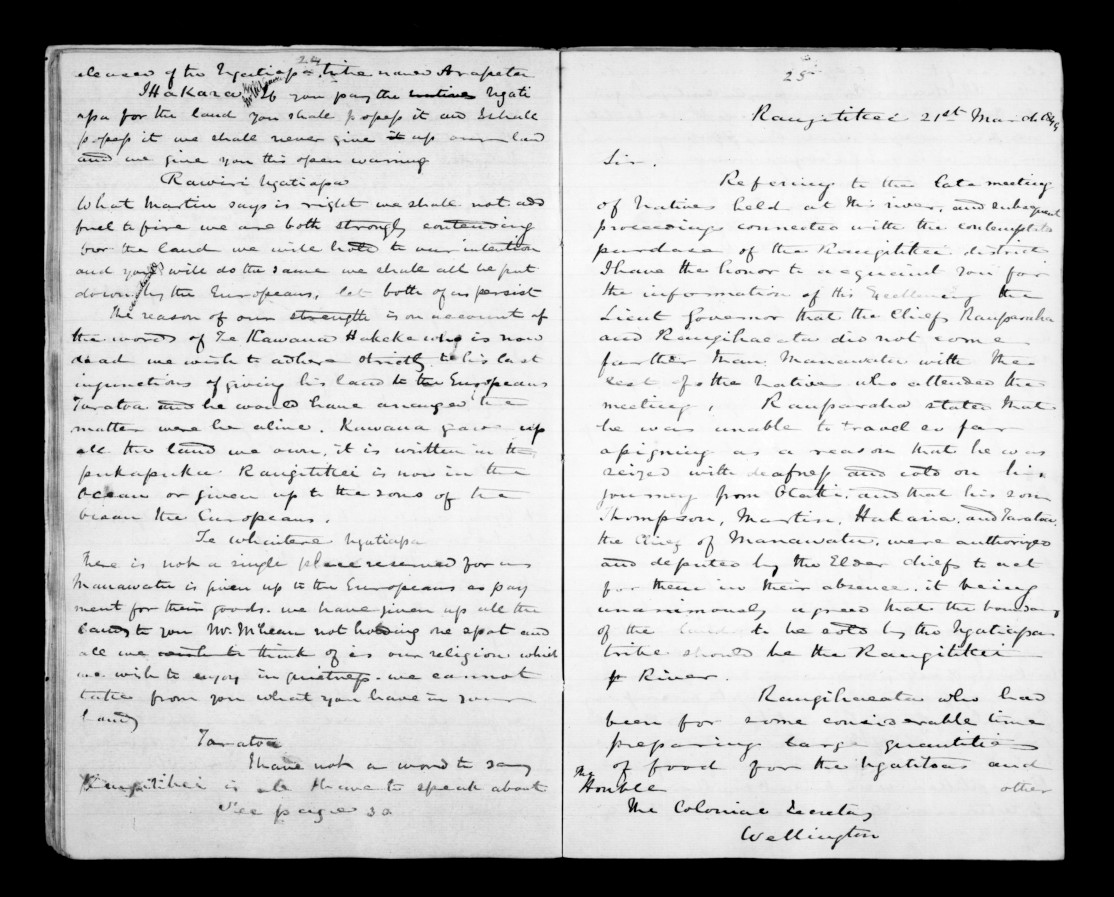 24
of the Ngatiapa tribe named Arapeta
Ihakara If you pay the native Ngati
apa for the land you shall possess it and I shall
possess it we shall never give it up our land
and we give you this open warning
Rawiri Ngatiapa
What Martin says is right we shall not add
fuel to fire we are both strongly contending
for the land we will hold to our intention
and you will do the same we shall all be put
down by the Europeans, let both of us persist
The reason of our strength is on account of
the words of Te Kawana Hakeke who is now
dead we wish to adhere strictly to his last
injunctions of giving his land to the Europeans
Taratoa and he would have arranged the
matter were he alive. Kawana gave up
all the land we own, it is written in the
pukapuka Rangitikei is now in the
Ocean or given up to the sons of the
ocean the Europeans.
Te Whaitere Ngatiapa
There is not a single place reserved for us
Manawatu is given up to the Europeans as pay
ment for their goods. we have given up all the
land to you Mr. McLean not holding one spot and
all we wish to think of is our religion which
we wish to enjoy in quietness we cannot
take from you what you have in your
hand
Taratoa
I have not a word to say
Rangitikei is all I have to speak about
See page 30
25
Rangitikei 21st March 1849
Sir.
Refering to the late meeting
of Natives held at this river, and subsequent
proceedings connected with the contemplated
purchase of the Rangitikei district
I have the honor to acquaint you for
the information of His Excellency the
Lieut Governor that the Chiefs Rauparaha
and Rangihaeata did not come
farther than Manawatu with the
rest of the Natives who attended the
meeting, Rauparaha stated that
he was unable to travel so far
assigning as a reason that he was
seized with deafness and cold on his
journey from Otaki, and that his son
Thompson, Martin, Hakaria, and Taratoa,
the Chief of Manawatu, were authorized
and deputed by the Elder chiefs to act
for them in their absence. it being
unanimously agreed that the boundary
of the land to be sold by the Ngatiapa
tribe should be the Rangitikei
River.
Rangihaeata who had
been for some considerable time
preparing large quantities
of food for the Ngatitoa and
other
The
Honble
The Colonial Secretary
Wellington